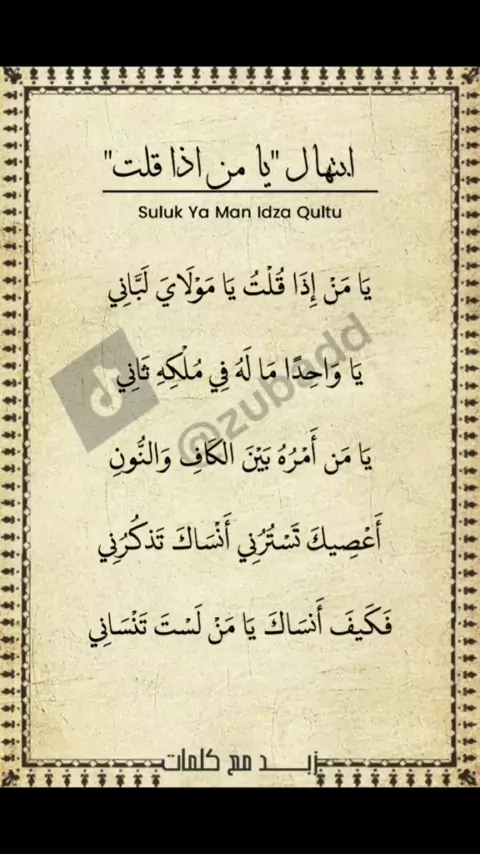 ابتهال "يا من اذا قلت"
Suluk Ya Man Idza Qultu
يَا مَنْ إِذَا قُلْتُ يَا مَوْلَايَ لَبَّانِي
يَا وَاحِدًا مَا لَهُ فِي مُلْكِهِ ثَانِي
@zubadd
يَا مَن أَمْرُهُ بَيْنَ الكَافِ وَالنُّونِ
أَعْصِيكَ تَسْتُرُنِي أَنْسَاكَ تَذكُرُنِي
فَكَيفَ أَنسَاكَ يَا مَنْ لَسْتَ تَنْسَانِي
زبد مع كلمات